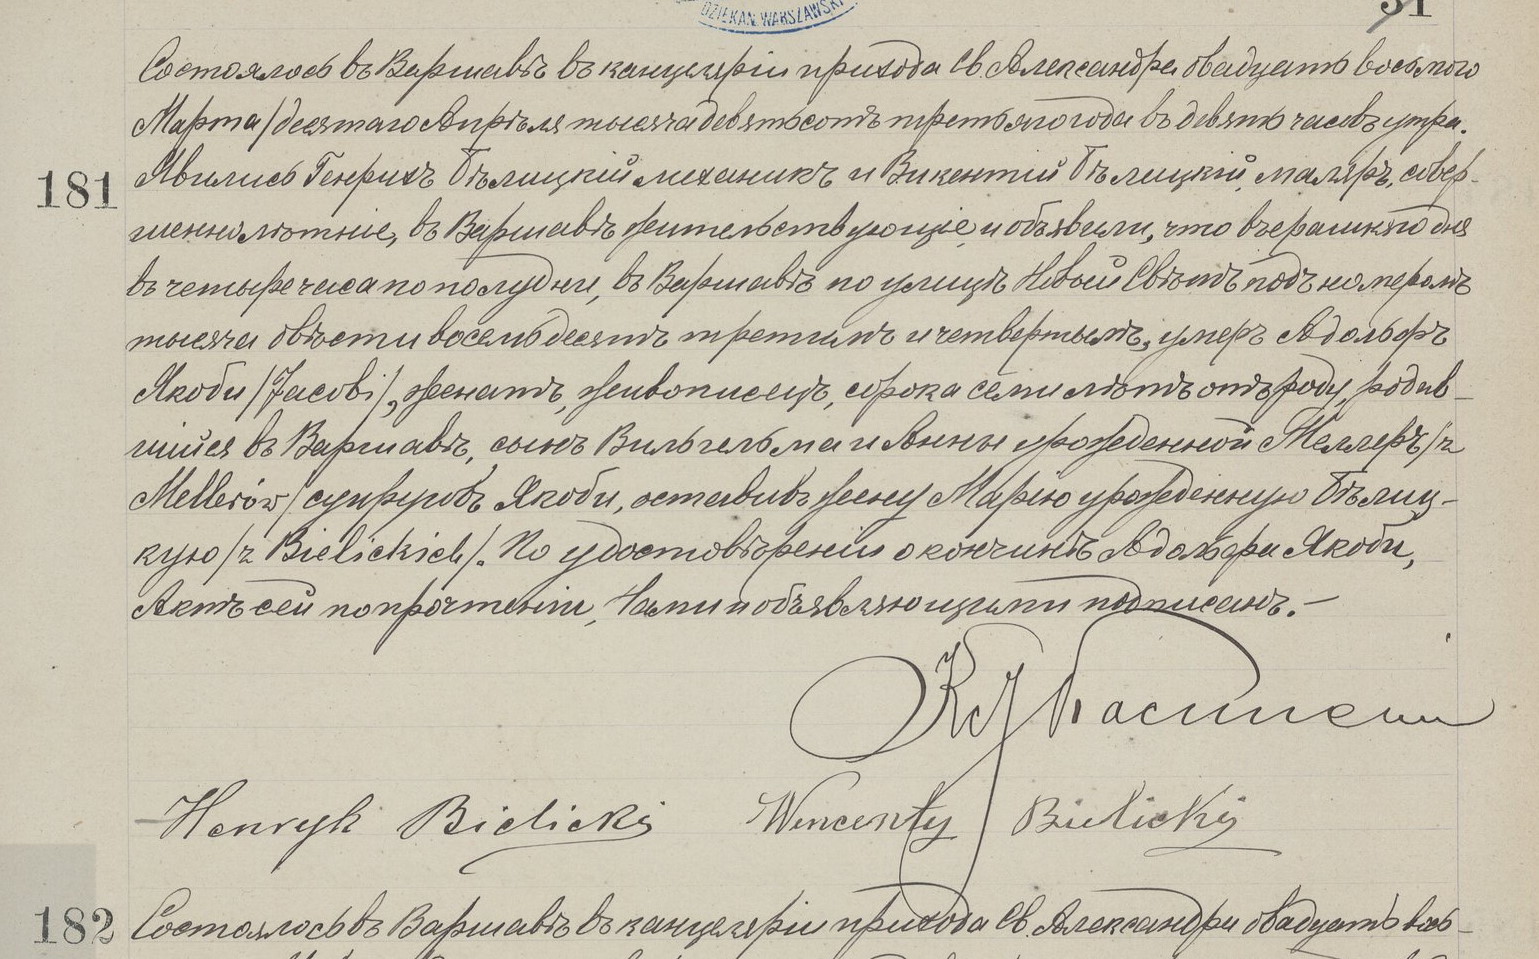 DZIEKAN WARSZAWSKI
31
Состоялось въ Варшавѣ въ канцеляріи прихода Св. Александра двадцать восьмого
Марта /десятаго Апрѣля тысяча девятьсотъ третьяго года въ девять часовъ утра.
181
Явились Генрихъ Бѣлицкій механикъ и Викентій Бѣлицкій, маляръ, совер-
шеннолѣтніе, въ Варшавѣ жительствующіе, и объявили, что вчерашняго дня
въ четыре часа по полудни, въ Варшавѣ по улицѣ Новый Свѣтъ подъ номеромъ
тысяча двѣсти восемьдесятъ третимъ и четвертымъ, умеръ Адольфъ
Якоби /Jacobi/, женатъ, живописецъ, сорока семи лѣтъ отъ роду, родив-
шийся въ Варшавѣ, сынъ Вильгельма и Анны урожденной Меллеръ /z
Mellerów/ супруговъ Якоби, оставивъ жену Марію урожденную Бѣлиц-
кую /z Bielickich/. По удостовѣреніи о кончинѣ Адольфа Якоби,
Актъ сей по прочтеніи, Нами и объявляющими подписанъ.—
Henryk Bielicki Wincenty Bielicki
182
Состоялось въ Варшавѣ въ канцеляріи прихода Св. Александра двадцать вось-